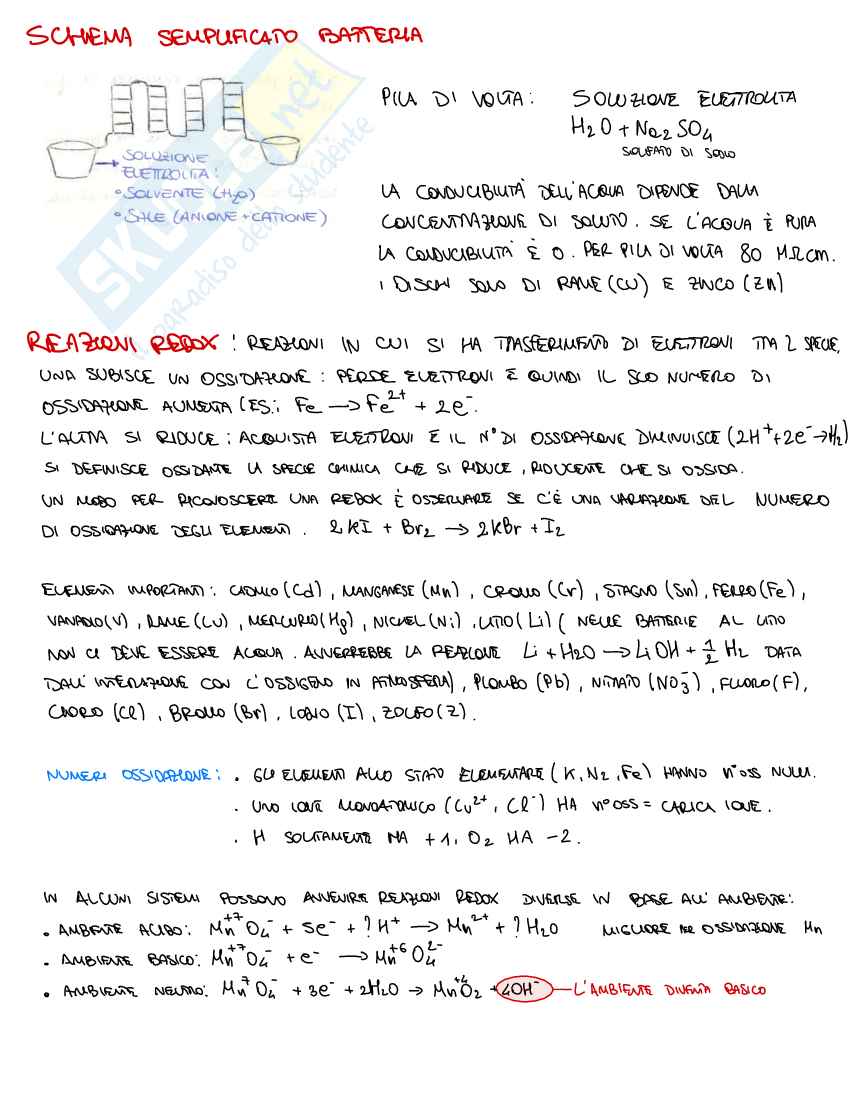 SCHEMA SEMPLIFICATO BATTERIA
SOLUZIONE
ELETTROLITA:
• SOLVENTE (H₂O)
• SALE (ANIONE + CATIONE)
PILA DI VOLTA: SOLUZIONE ELETTROLITA
H₂O + Na₂SO₄
SOLFATO DI SODIO
LA CONDUCIBILITÀ DELL'ACQUA DIPENDE DALLA
CONCENTRAZIONE DI SOLUTO. SE L'ACQUA È PURA
LA CONDUCIBILITÀ È 0. PER PILA DI VOLTA 80 MΩcm.
I DISCHI SOLO DI RAME (CU) E ZINCO (ZN)
REAZIONI REDOX: REAZIONI IN CUI SI HA TRASFERIMENTO DI ELETTRONI TRA 2 SPECIE,
UNA SUBISCE UN OSSIDAZIONE: PERDE ELETTRONI E QUINDI IL SUO NUMERO DI
OSSIDAZIONE AUMENTA (ES: Fe → Fe²⁺ + 2e⁻.
L'ALTRA SI RIDUCE: ACQUISTA ELETTRONI E IL N° DI OSSIDAZIONE DIMINUISCE (2H⁺+2e⁻→H₂)
SI DEFINISCE OSSIDANTE LA SPECIE CHIMICA CHE SI RIDUCE, RIDUCENTE CHE SI OSSIDA.
UN MODO PER RICONOSCERE UNA REDOX È OSSERVARE SE C'È UNA VARIAZIONE DEL NUMERO
DI OSSIDAZIONE DEGLI ELEMENTI. 2KI + Br₂ → 2KBr + I₂
ELEMENTI IMPORTANTI: CADMIO (Cd), MANGANESE (Mn), CROMO (Cr), STAGNO (Sn), FERRO (Fe),
VANADIO (V), RAME (CU), MERCURIO (Hg), NICHEL (Ni), LITIO (Li) (NELLE BATTERIE AL LITIO
NON CI DEVE ESSERE ACQUA. AVVERREBBE LA REAZIONE Li + H2O → LiOH + ½ H₂ DATA
DALL'INTERAZIONE CON L'OSSIGENO IN ATMOSFERA), PIOMBO (Pb), NITRATO (NO₃⁻), FLUORO (F),
CLORO (Cl), BROMO (Br), IODIO (I), ZOLFO (Z).
NUMERI OSSIDAZIONE: • GLI ELEMENTI ALLO STATO ELEMENTARE (K, N₂, Fe) HANNO n°oss NULLI.
• UNO IONE MONOATOMICO (Cu²⁺, Cl⁻) HA n°oss = CARICA IONE.
• H SOLITAMENTE HA +1, O₂ HA -2.
IN ALCUNI SISTEMI POSSONO AVVENIRE REAZIONI REDOX DIVERSE IN BASE ALL'AMBIENTE:
• AMBIENTE ACIDO: Mn⁺⁷O₄⁻ + 5e⁻ + ?H⁺ → Mn²⁺ + ?H₂O MIGLIORE PER OSSIDAZIONE Mn
• AMBIENTE BASICO: Mn⁺⁷O₄⁻ + e⁻ → Mn⁺⁶O₄²⁻
• AMBIENTE NEUTRO: Mn⁷O₄⁻ + 3e⁻ + 2H₂O → Mn⁺⁴O₂ + 4OH⁻ — L'AMBIENTE DIVENTA BASICO
SKUOLA.net
il paradiso dello studente